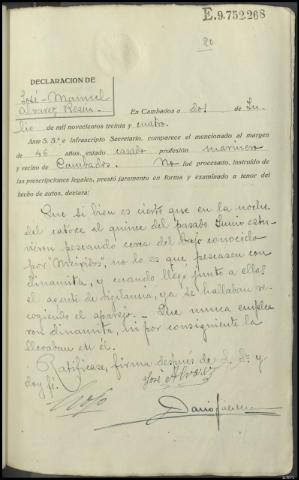 E.9.752.268
20
DECLARACION DE
José-Manuel
Alvarez
En Cambados a dos de Ju-
lio de mil novecientos treinta y cuatro.
Ante S. Sª e infraescripto Secretario, comparece el mencionado al margen
de 46 años, estado casado profesión marinero
y vecino de Cambados. No fué procesado, instruído de
las prescripciones legales, prestó juramento en forma y examinado a tenor del
hecho de autos, declara:
Que si bien es cierto que en la noche
del catorce al quince del pasado Junio estu-
vieron pescando cerca del bajo conocido
por no lo es que pescasen con
dinamita, y cuando llegó junto a ellos
el agente de vigilancia, ya se hallaban re-
cogiendo el aparejo. - Que nunca emplea
ron dinamita, ni por consiguiente la
llevaban en él.
Ratificase, firma después de S. Sª y
doy fé.
José Alvarez
Dario